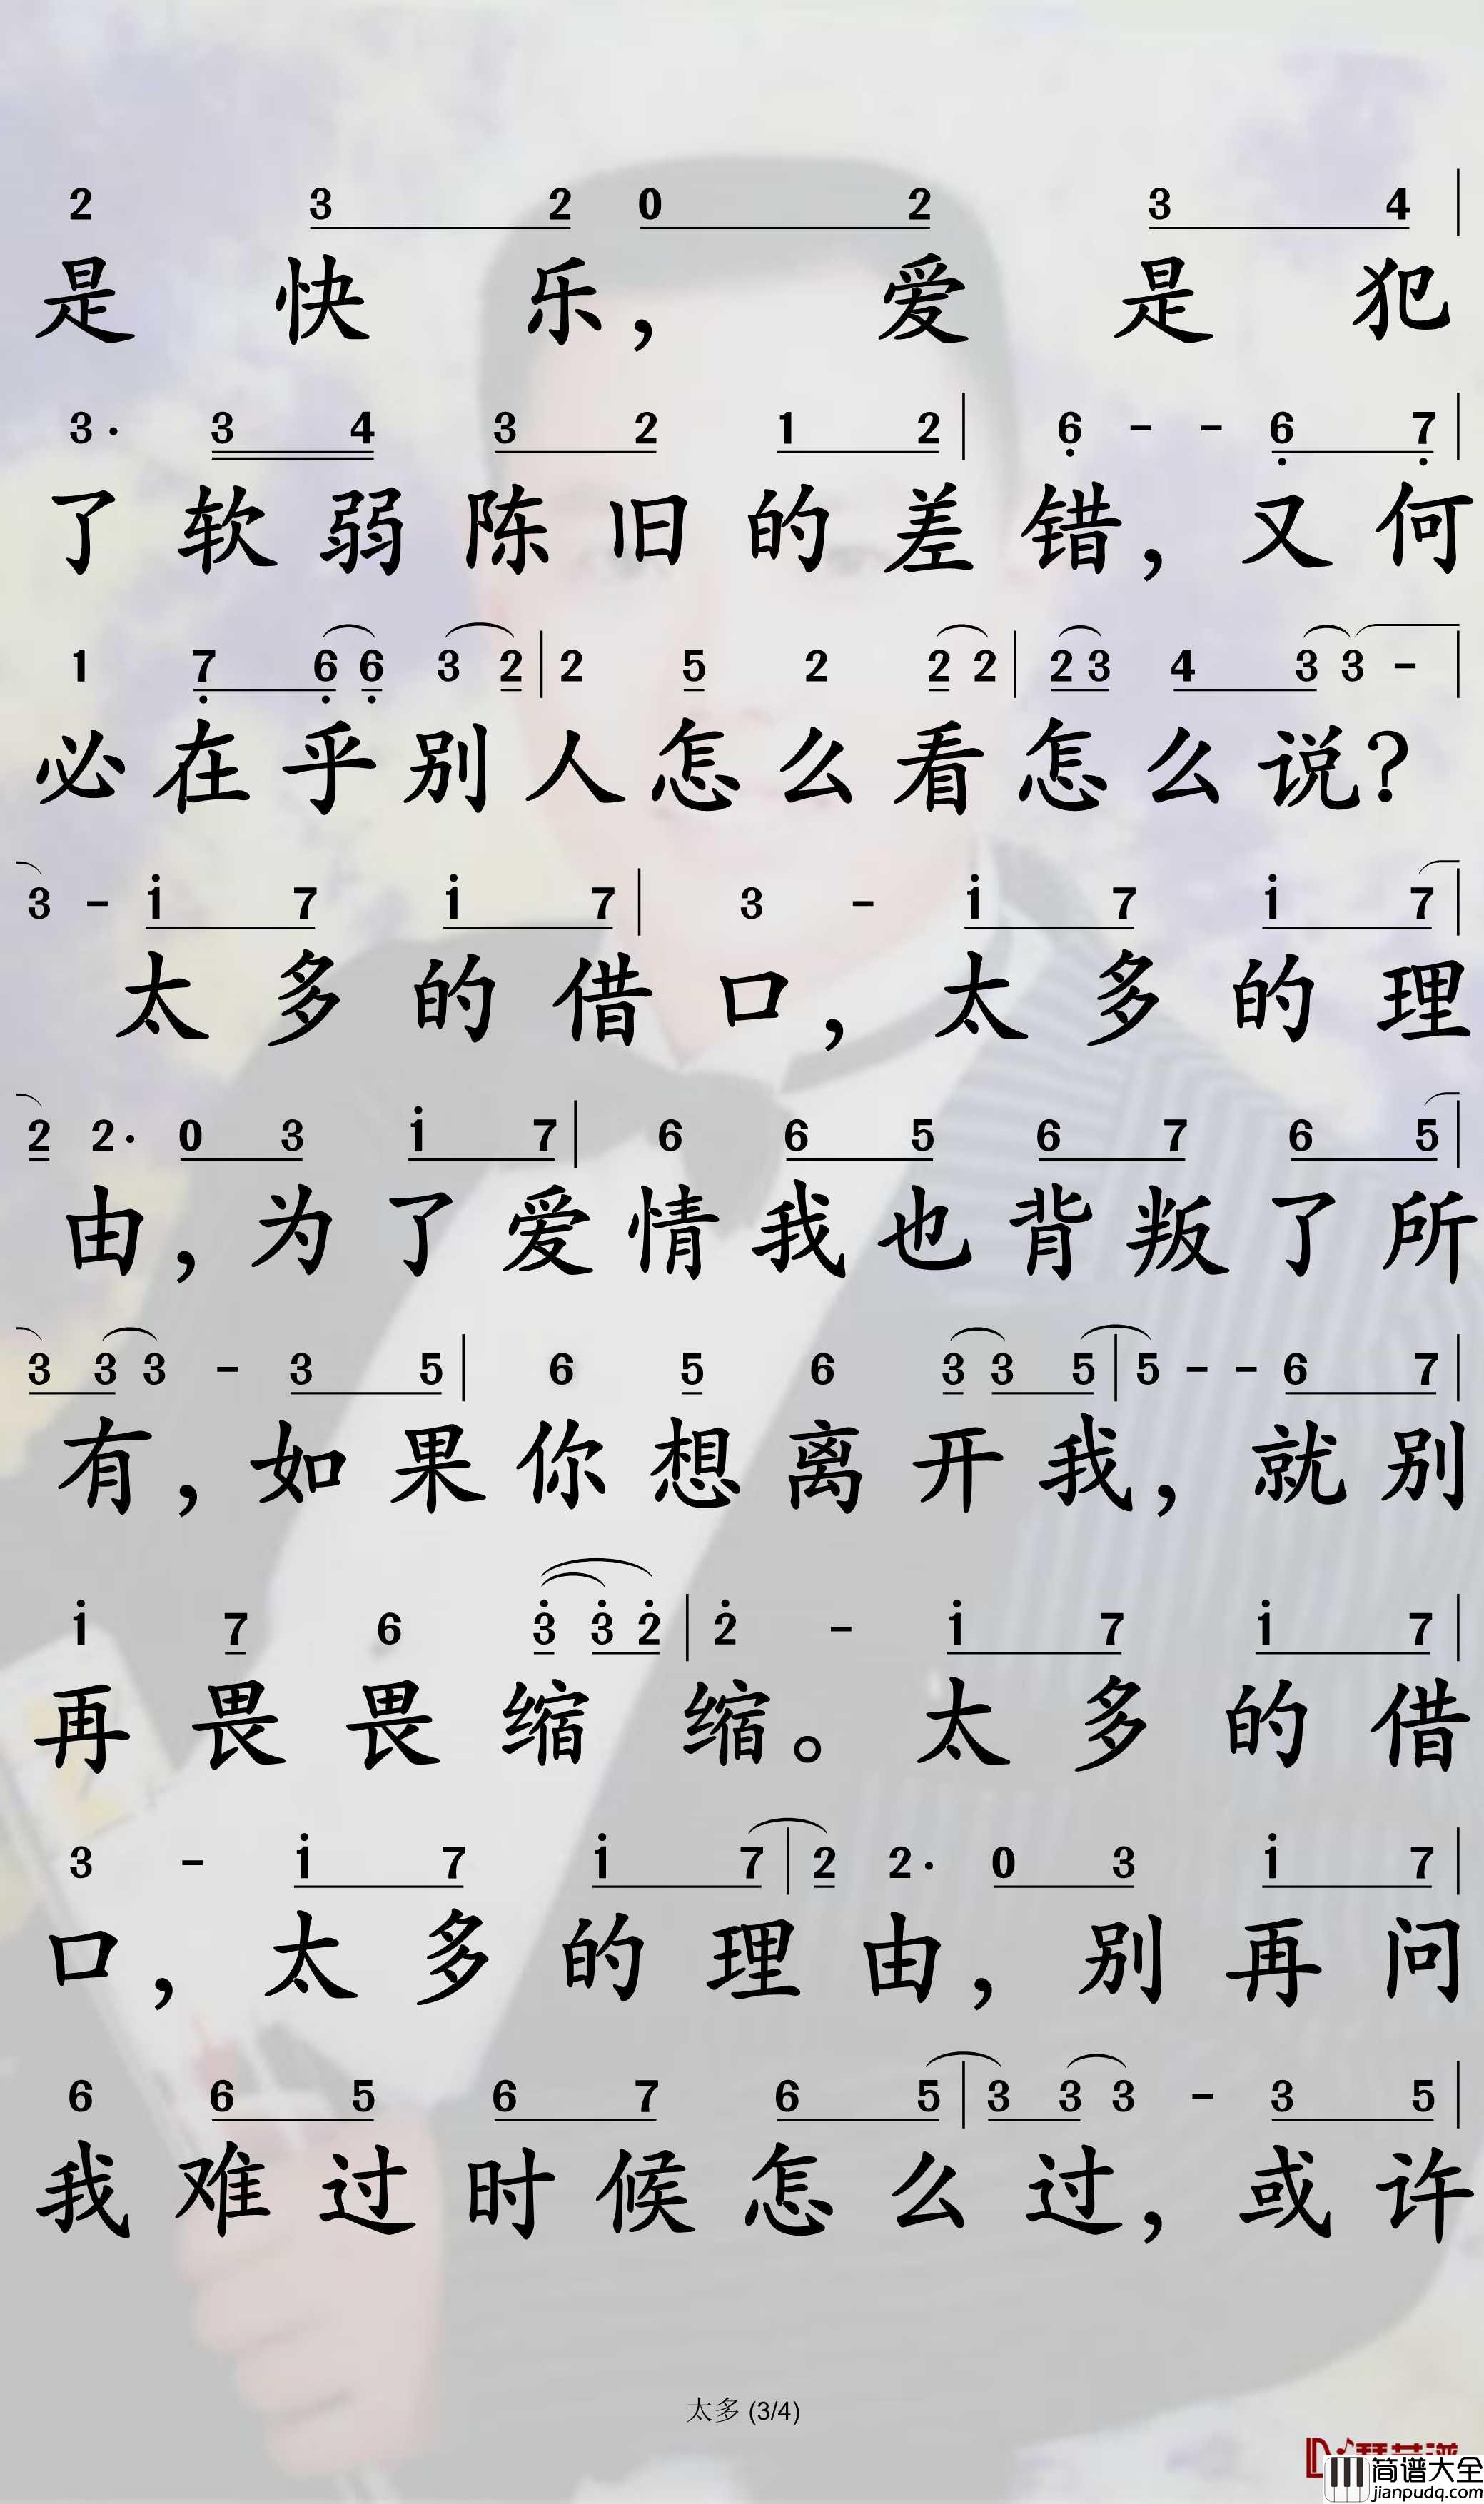 2 3 2 0 2 3 4 |
是快乐，爱是犯
3· 3 4 3 2 1 2 | 6̣ - - 6̣ 7̣ |
了软弱陈旧的差错，又何
1 7̣ 6̣ 6̣ 3 2 | 2 5 2 2 2 | 2 3 4 3 3 - |
必在乎别人怎么看怎么说？
3 - i 7 i 7 | 3 - i 7 i 7 |
太多的借口，太多的理
2 2· 0 3 i 7 | 6 6 5 6 7 6 5 |
由，为了爱情我也背叛了所
3 3 3 - 3 5 | 6 5 6 3 3 5 | 5 - - 6 7 |
有，如果你想离开我，就别
i 7 6 3̇ 3̇ 2̇ | 2̇ - i 7 i 7 |
再畏畏缩缩。太多的借
3 - i 7 i 7 | 2 2· 0 3 i 7 |
口，太多的理由，别再问
6 6 5 6 7 6 5 | 3 3 3 - 3 5 |
我难过时候怎么过，或许
太多 (3/4)
简谱大全
jianpudq.com